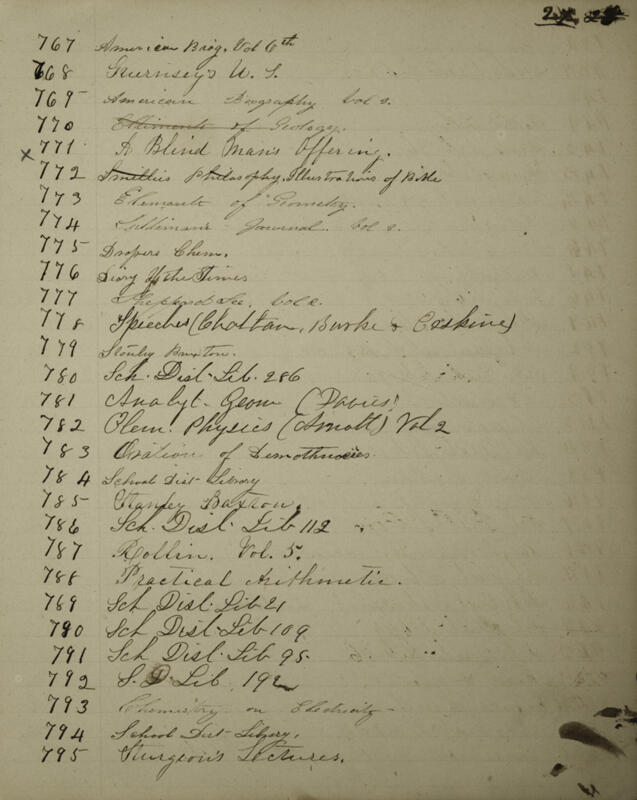 767 American Biog. Vol 6th
768 Guernsey's U. S.
769 American Biography Vol 2.
770 Elliments of Geology.
x 771 A Blind Man's Offering.
772 Smellies Philosophy, Illustrations of Bible
773 Elements of Geometry.
774 Sillimans Journal. Vol 2.
775 Drapers Chem.
776 Diary of the Times
777 Sheppard Lee, Vol 2.
778 Speeches (Chattam, Burke & Erskine)
779 Stanley Buxton.
780 Sch. Dist. Lib. 286
781 Analyt. Geom (Davies)
782 Elem. Physics (Arnott) Vol 2
783 Oration of
784 School Dist Library
785 Stanley Buxton.
786 Sch. Dist. Lib 112
787 Rollin. Vol. 5.
788 Practical Arithmetic.
789 Sch Dist. Lib 21
790 Sch Dist. Lib 109
791 Sch Dist. Lib 95
792 S. D. Lib. 192
793 Chemistry on Electricity
794 School Dist Library.
795 Sturgeon's Lectures.